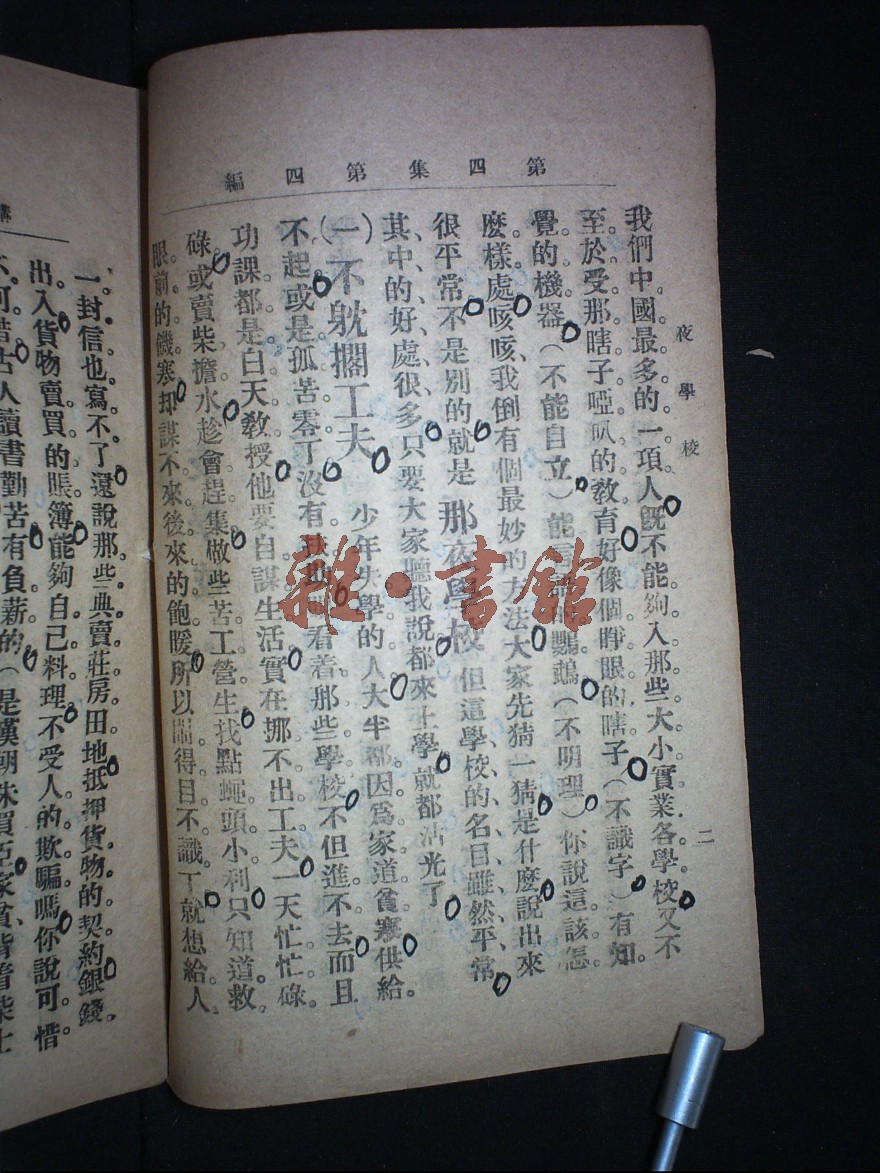 第四集第四編
夜學校
二
我們中國最多的一項人旣不能夠入那些大小實業各學校又不
至於受那瞎子啞叭的敎育好像個睜眼的瞎子(不識字)有知
覺的機器(不能自立)能言語的鸚鵡(不明理)你說這該怎
麽樣處咳咳我倒有個最妙的方法大家先猜一猜是什麽說出來
很平常不是別的就是那夜學校但這學校的名目雖然平常
其中的好處很多只要大家聽我說都來上學就都沾光了
(一)不躭擱工夫 少年失學的人大半都因爲家道貧寒供給
不起或是孤苦零丁沒有 看着那些學校不但進不去而且
功課都是白天敎授他要自謀生活實在挪不出工夫一天忙忙碌
碌或賣柴擔水趁會趕集做些苦工營生找點蠅頭小利只知道救
眼前的饑寒却謀不來後來的飽暖所以鬧得目不識丁就想給人
一封信也寫不了還說那些典賣莊房田地抵押貨物的契約銀錢
出入貨物賣買的賬簿能夠自己料理不受人的欺騙嗎你說可惜
不可惜古人讀書勤苦有負薪的(是漢朝朱買臣家貧背着柴上
雜·書館